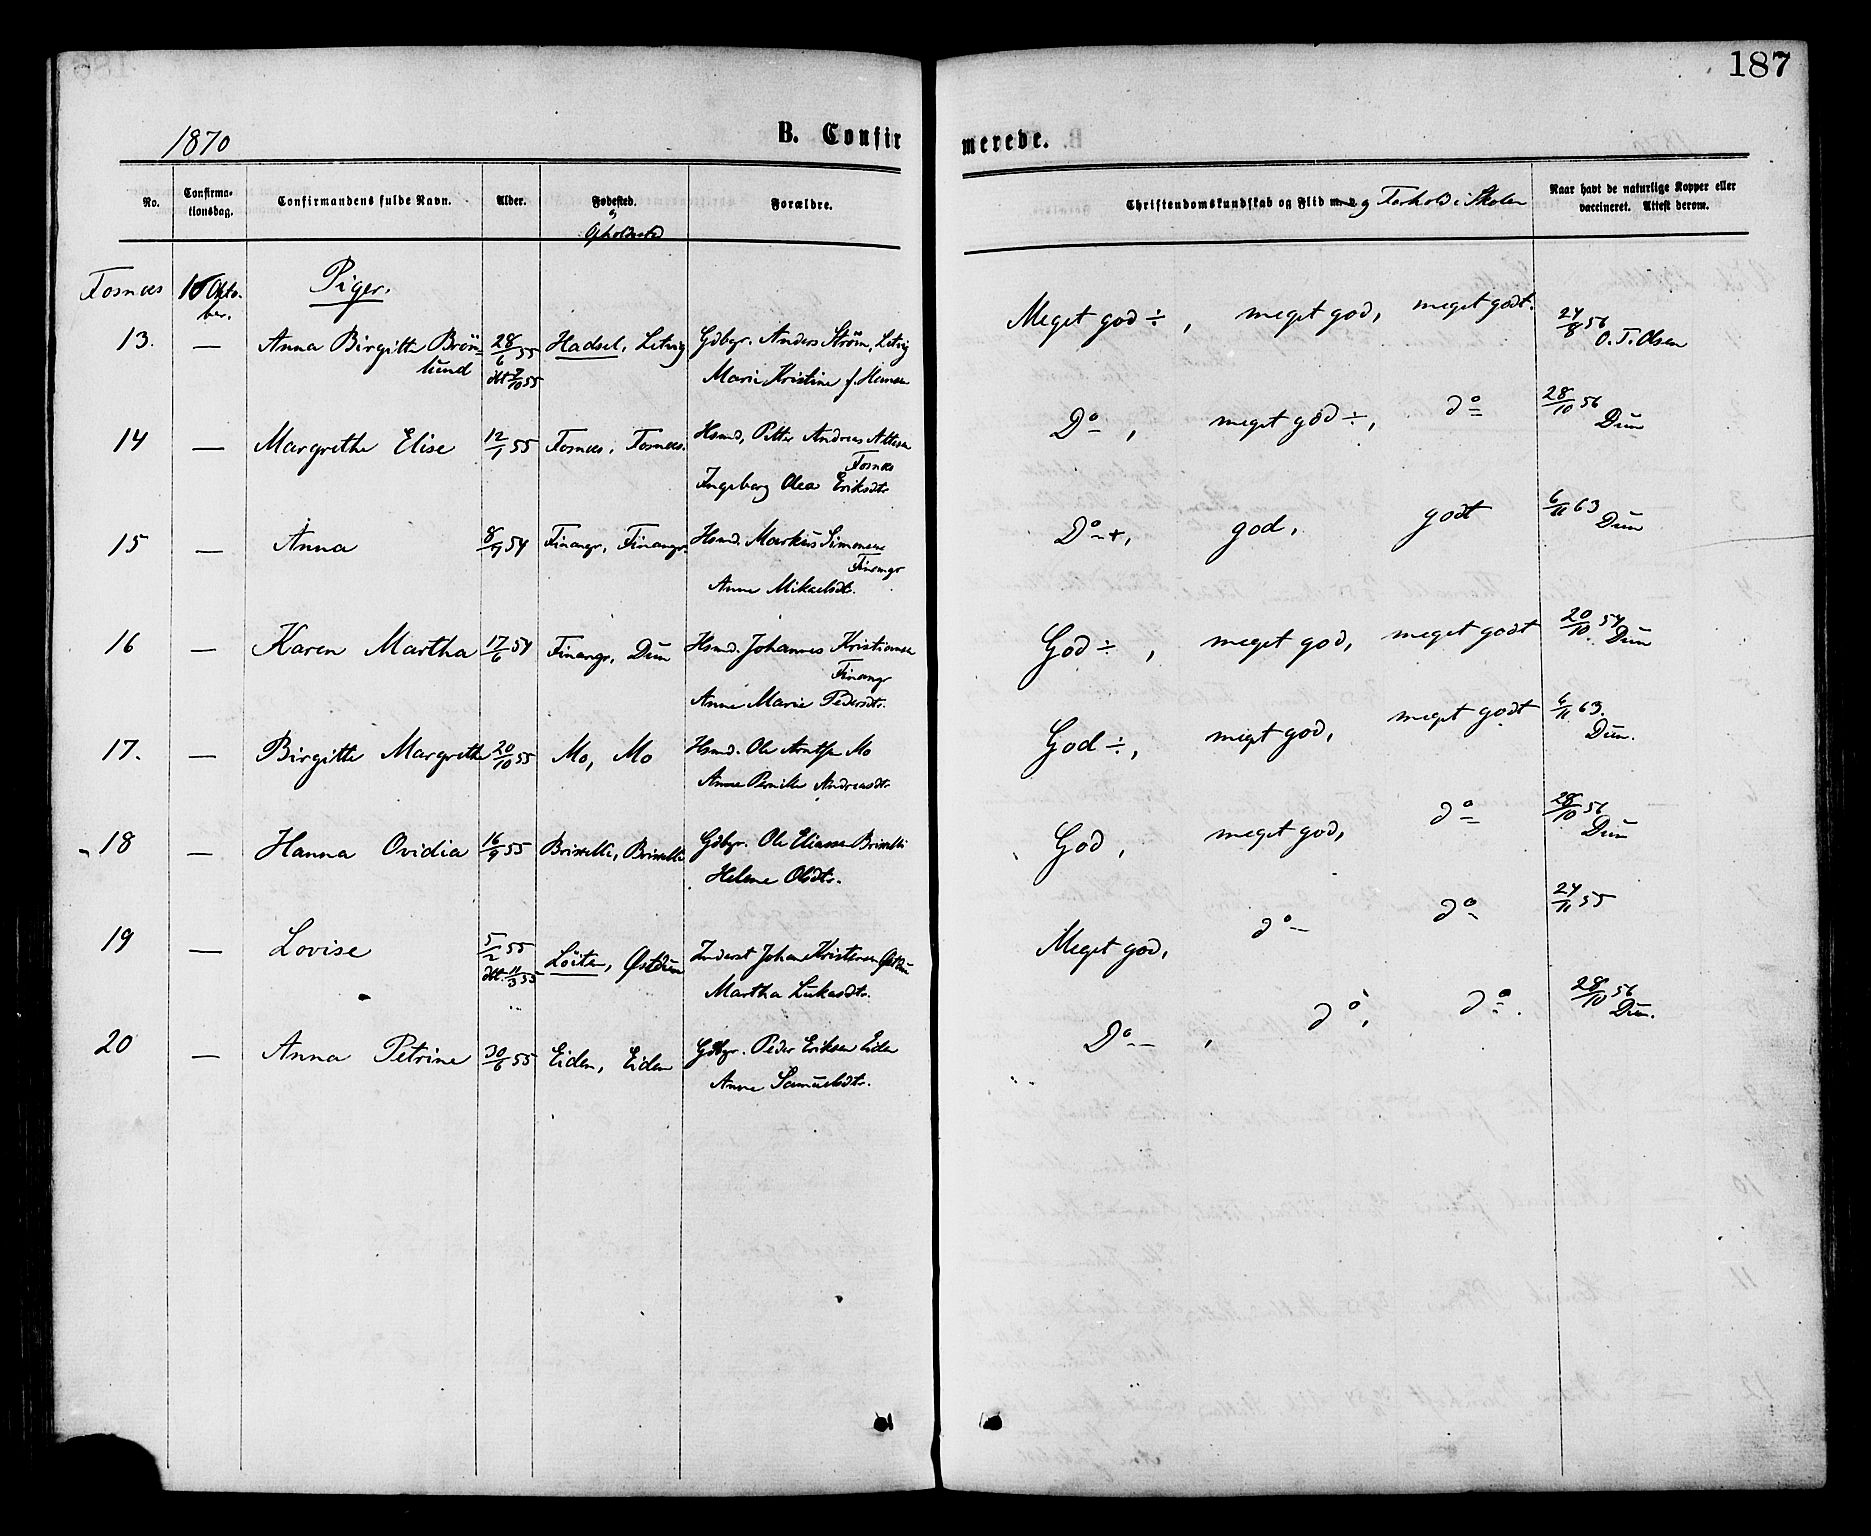 187
1870
B. Confirmerede.
No. Confirmationsdag. Confirmandens fulde Navn. Alder. Fødested. og Opholdssted Forældre. Christendomskundskab og Flid m. v. og Forhold i Skolen Naar havt de naturlige Kopper eller vaccineret. Attest derom.
Fosnæs Oktober. Piger.
13. — Anna Birgitte Brönlund 28/6 55 döbt 7/10 55 Hadsel, Letvig Gdbgr. Anders Ström, Letvig
Marie Kristine f. Hansen
Meget god ÷, meget god, meget godt. 24/8 56 O. T. Olsen
14 — Margrethe Elise 12/1 55 Fosnæs, Fosnæs. Hsmd, Petter Andreas Fosnæs
Ingeborg Olea Eriksdtr.
Do, meget god ÷, do 28/10 56 Dun
15 — Anna 8/9 54 Finangr, Finangr. Hsmd. Markus Simonsen Finangr
Anne Mikaelsdtr.
Do +, god, godt 6/11 63 Dun
16 — Karen Martha 17/6 54 Finangr, Dun Hsmd. Johannes Kristiansen Finangr
Anne Marie Pedersdtr.
God ÷, meget god, meget godt 20/10 54 Dun
17. — Birgitte Margrethe 20/10 55 Mo, Mo Hsmd. Ole Arntsen Mo
Anne Pernille Andreasdtr.
God ÷, meget god, meget godt 6/11 63. Dun.
18 — Hanna Ovidia 16/9 55 Gdbgr. Ole Eliassen
Helene Olsdtr.
God, meget god, do 28/10 56 Dun
19 — Lovise 5/2 55 döbt 11/3 55 Löiten, Østdun Inderst Johan Kristensen Østdun
Martha Lukasdtr.
Meget god, do do 24/11 55
20 — Anna Petrine 30/6 55 Eiden, Eiden Gdbgr. Peder Eriksen Eiden
Anne Samuelsdtr.
Do, do, do. 28/10 56 Dun.